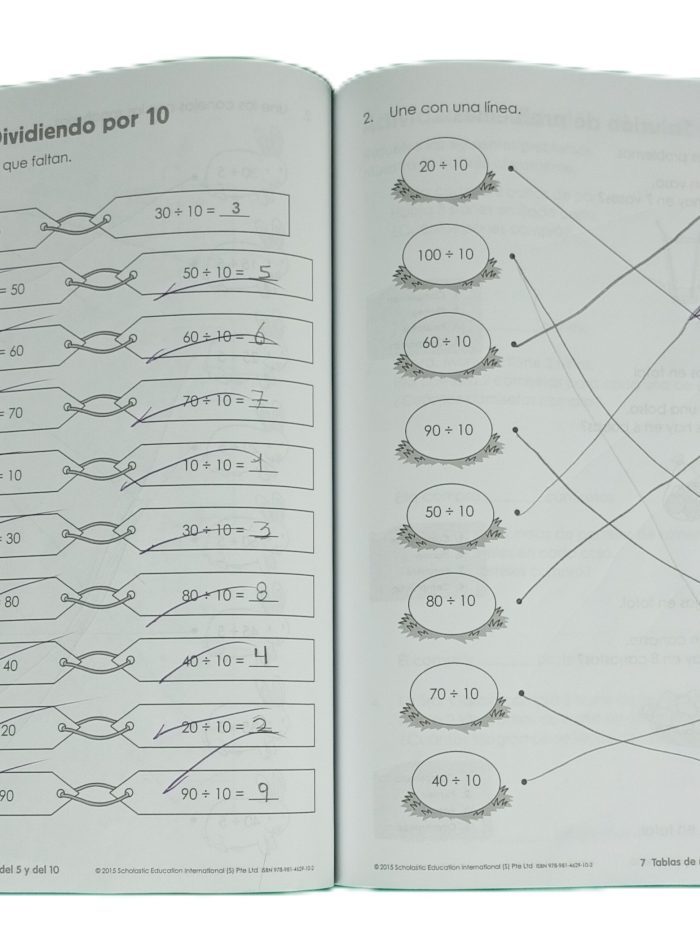 Dividiendo por 10
que faltan.
30 ÷ 10 = 3
= 50
50 ÷ 10 = 5
= 60
60 ÷ 10 = 6
= 70
70 ÷ 10 = 7
= 10
10 ÷ 10 = 1
= 30
30 ÷ 10 = 3
80
80 ÷ 10 = 8
40
40 ÷ 10 = 4
20
20 ÷ 10 = 2
90
90 ÷ 10 = 9
del 5 y del 10
© 2015 Scholastic Education International (S) Pte Ltd ISBN 978-981-4629-10-2
2. Une con una línea.
20 ÷ 10
100 ÷ 10
60 ÷ 10
90 ÷ 10
50 ÷ 10
80 ÷ 10
70 ÷ 10
40 ÷ 10
© 2015 Scholastic Education International (S) Pte Ltd ISBN 978-981-4629-10-2
7 Tablas de